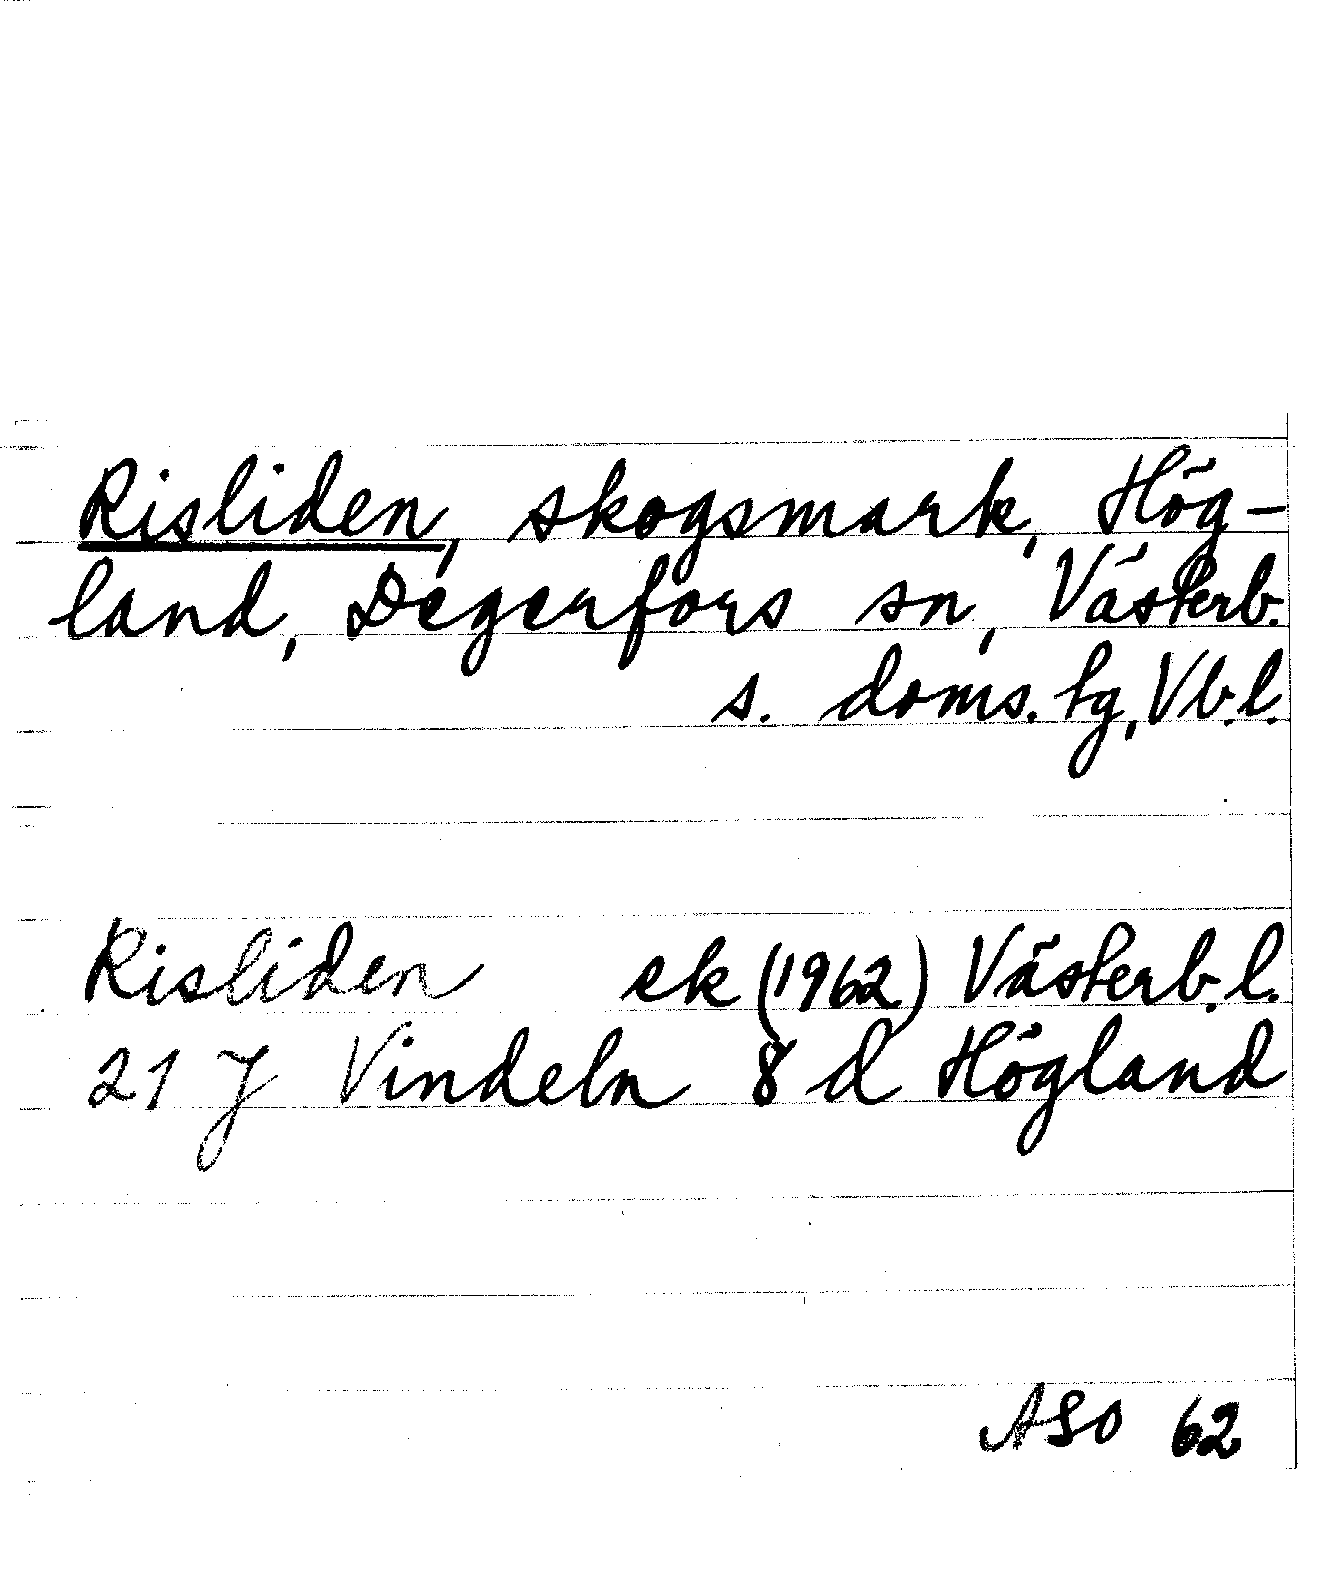 Risliden, skogsmark, Hög-
land, Degerfors sn, Västerb.
s. doms. tg, Vb.l.
Risliden ek (1962) Västerb.l.
21 J Vindeln 8 d Högland
ASO 62